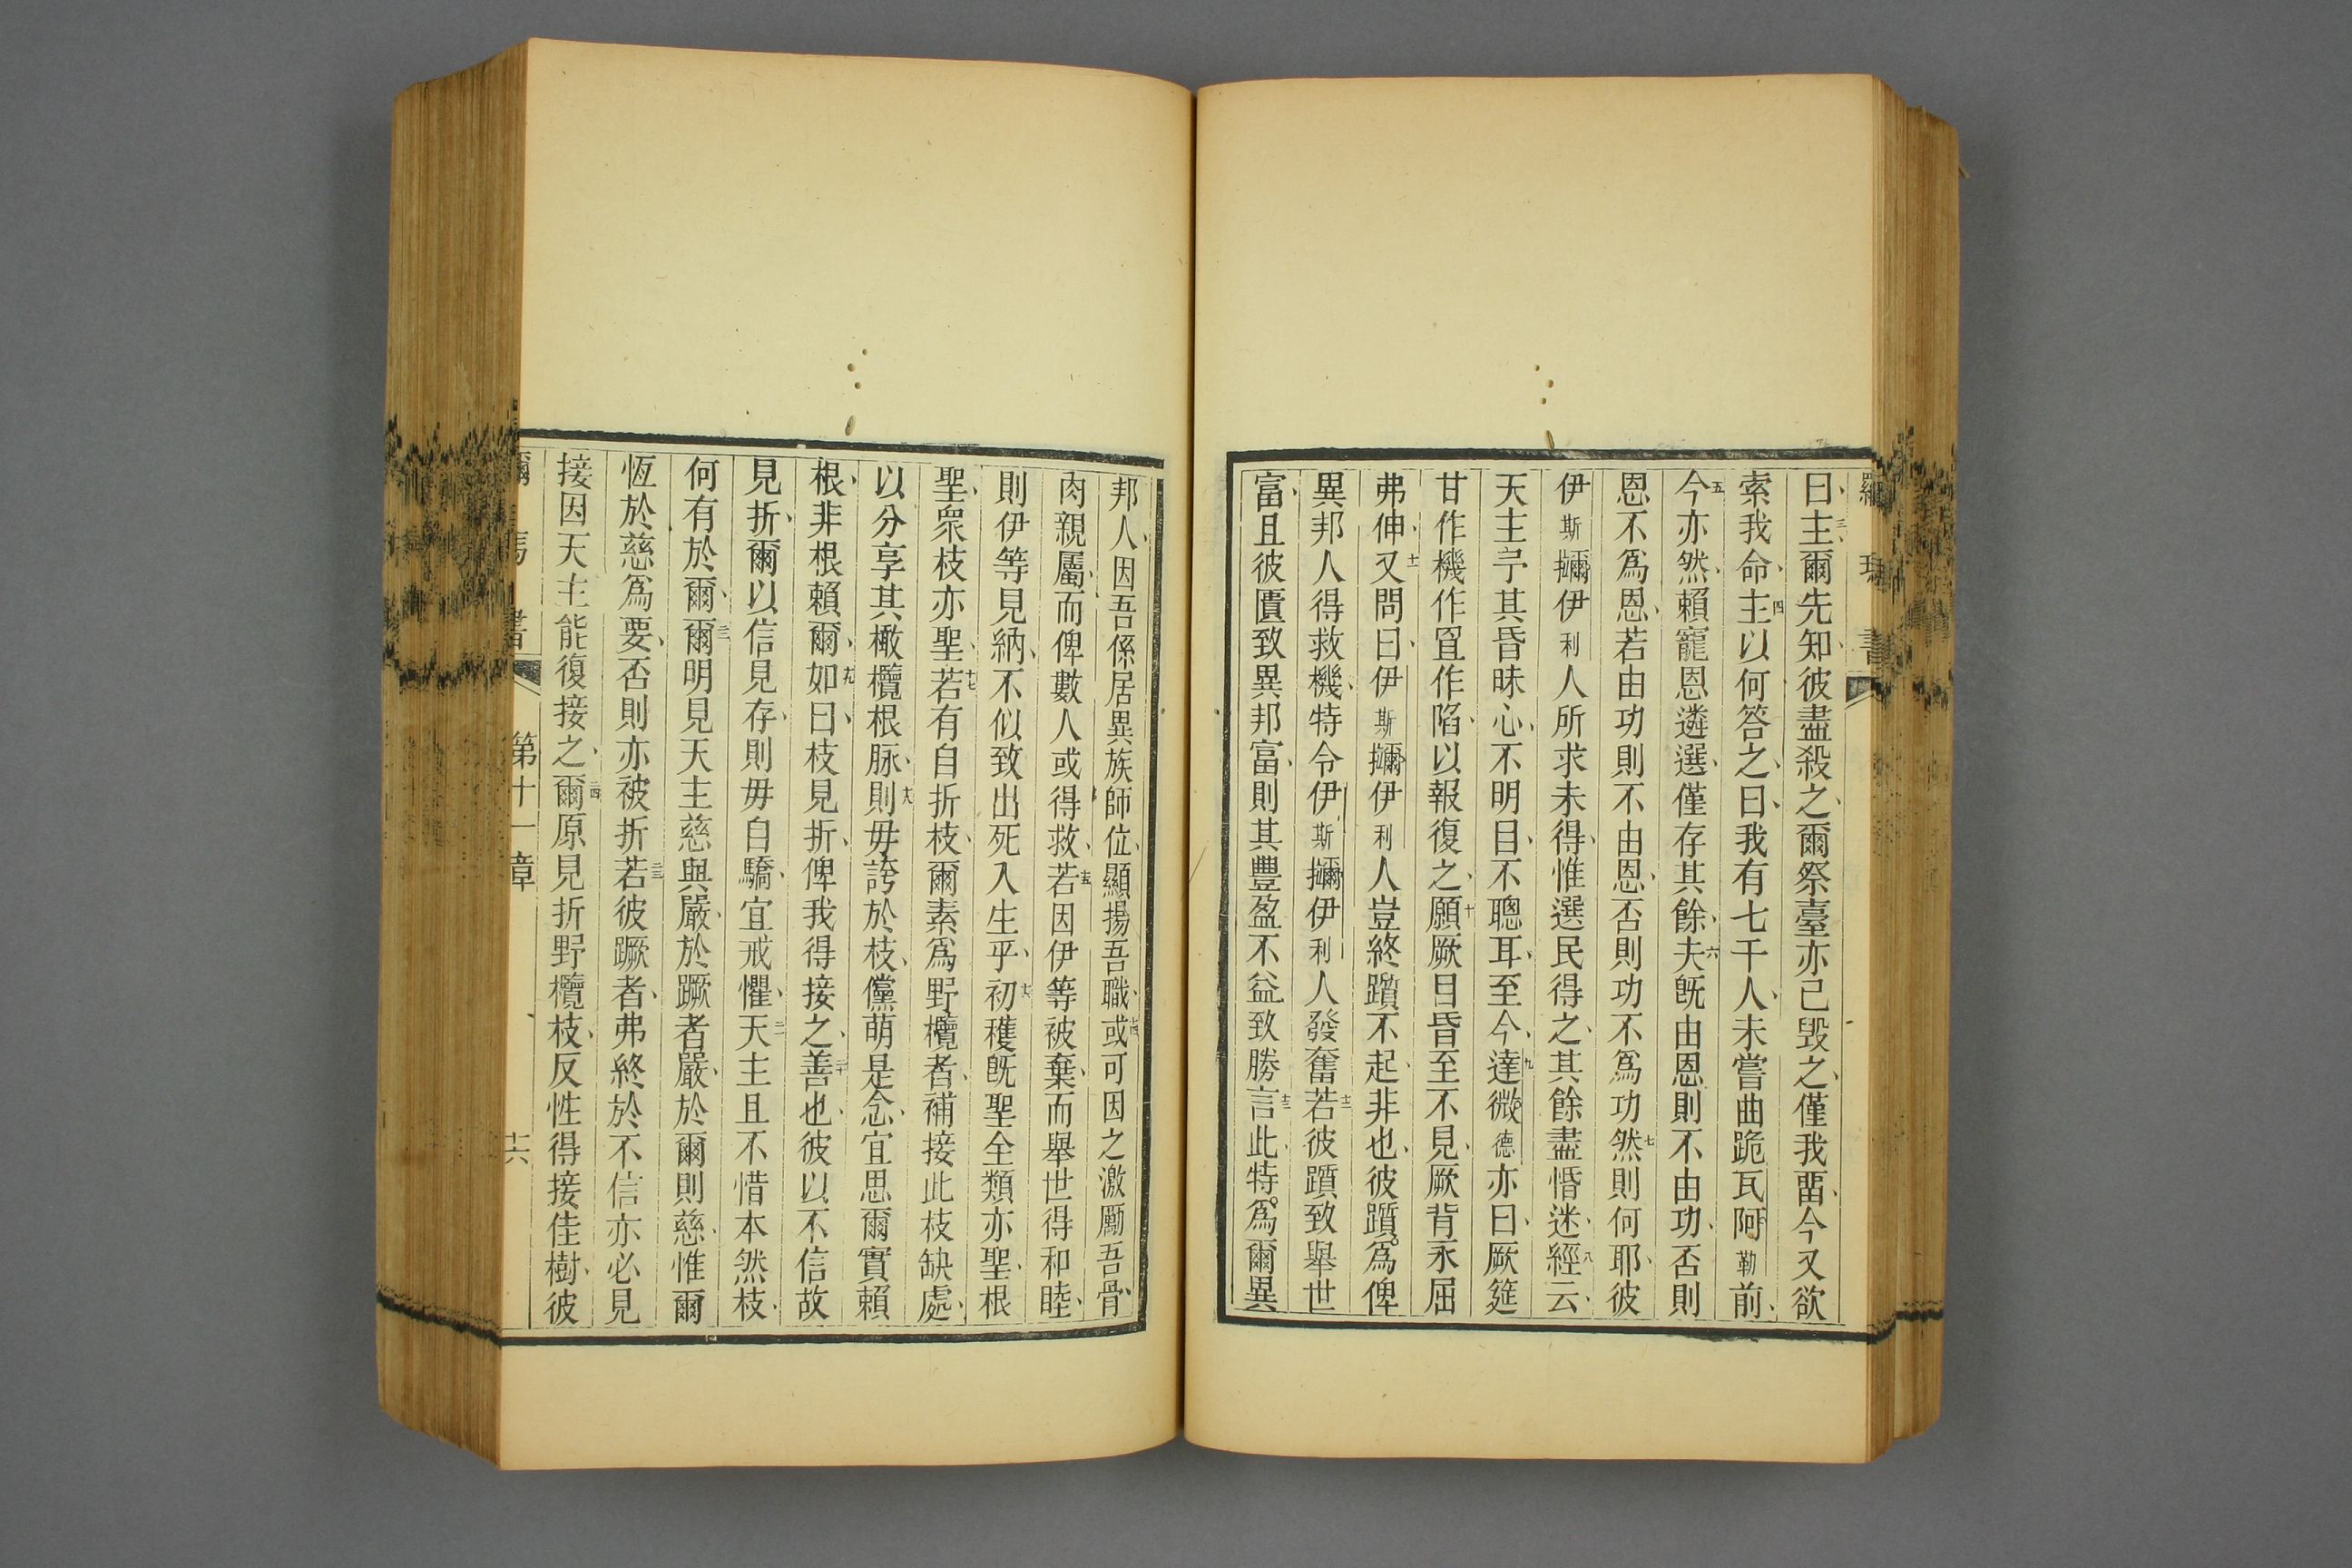 曰主三爾先知彼盡殺之爾祭臺亦己毀之僅我畱今又欲
索我命主四以何答之曰我有七千人未嘗曲跪瓦阿勒前
今五亦然賴寵恩遴選僅存其餘夫六旣由恩則不由功否則
恩不爲恩若由功則不由恩否則功不爲功然七則何耶彼
伊斯擟伊利人所求未得惟選民得之其餘盡惛迷經八云
天主予其昏昧心不明目不聰耳至今達九微德亦曰厥筵
甘作機作罝作陷以報復之願十厥目昏至不見厥背永屈
弗伸又十一問曰伊斯擟伊利人豈終躓不起非也彼躓爲俾
異邦人得救機特令伊斯擟伊利人發奮若十二彼躓致舉世
富且彼匱致異邦富則其豐盈不益致勝言十三此特爲爾異
邦人因吾係居異族師位顯揚吾職或十四可因之激勵吾骨
肉親屬而俾數人或得救若十五因伊等被棄而舉世得和睦
則伊等見納不似致出死入生乎初十六穫旣聖全類亦聖根
聖衆枝亦聖若十七有自折枝爾素爲野欖者補接此枝缺處
以分享其橄欖根脉則十八毋誇於枝儻萌是念宜思爾實賴
根非根賴爾如十九曰枝見折俾我得接之善二十也彼以不信故
見折爾以信見存則毋自驕宜戒懼天二一主且不惜本然枝
何有於爾爾二二明見天主慈與嚴於蹶者嚴於爾則慈惟爾
恆於慈爲要否則亦被折若二三彼蹶者弗終於不信亦必見
接因天主能復接之爾二四原見折野欖枝反性得接佳樹彼
第十一章
十六